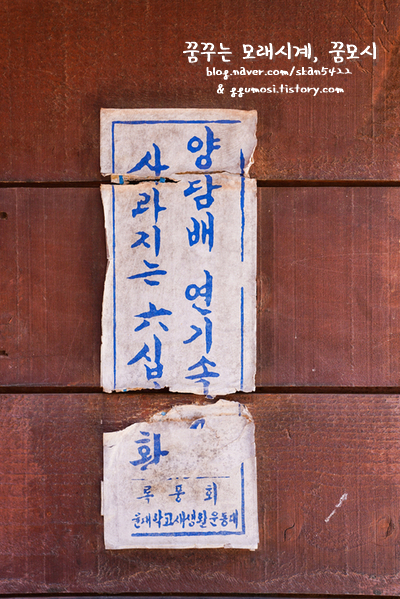 꿈꾸는 모래시계, 꿈모시
blog.naver.com/skan5422
& ggumosi.tistory.com
양담배 연기속
사라지는 六십
환
대학교새생활운동대